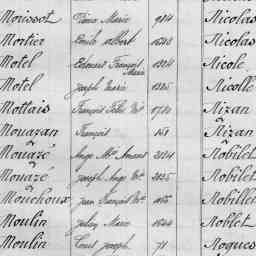 Morisset Pierre Marie 984 Nicolas
Mortier Emile Albert 1543 Nicolas
Motel Edouard François Marie 1324 Nicole
Motel Joseph Marie 1325 Nicolle
Motlais François Félix Mie 1721 Nizan
Mouazan François 151 Nizan
Mouazé Ange Mie Amand 2024 Nobilet
Mouazé Joseph Ange Mie 2025 Nobilet
Mouchoux Jean François Mie Nobillet
Moulin Julien Marie 1544 Noblet
Moulin Louis Joseph 71 Nogues